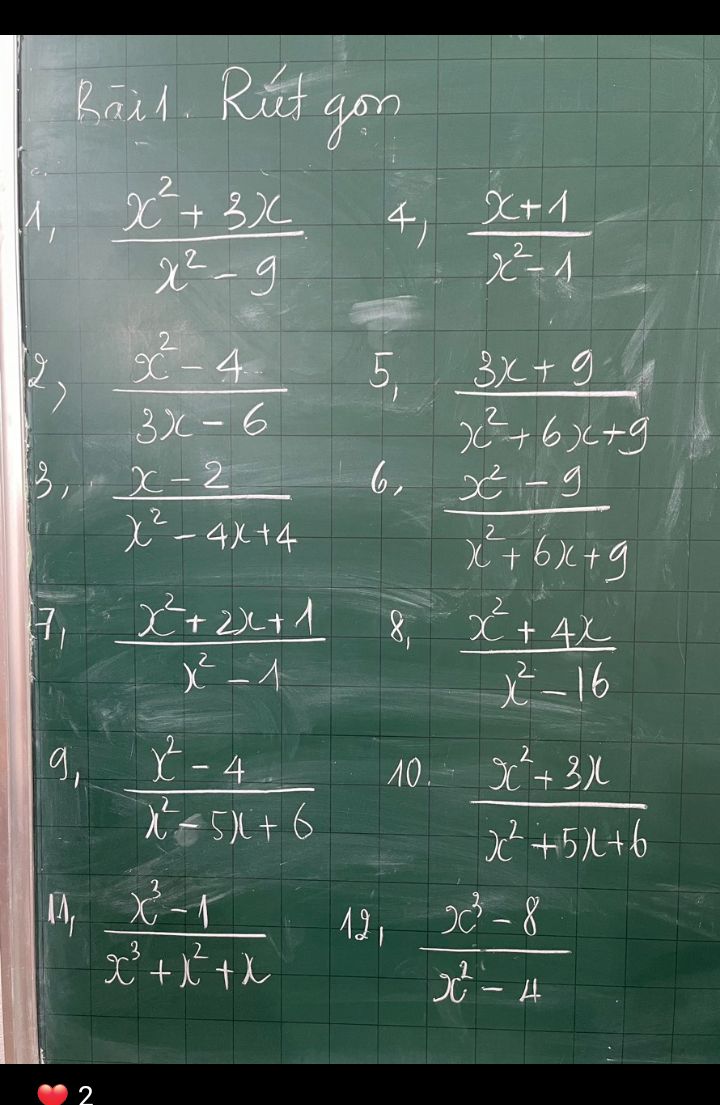 Bài 1. Rút gọn
1, (x² + 3x)/(x² - 9)
4, (x+1)/(x² - 1)
2, (x² - 4)/(3x - 6)
5, (3x + 9)/(x² + 6x + 9)
3, (x - 2)/(x² - 4x + 4)
6, (x² - 9)/(x² + 6x + 9)
7, (x² + 2x + 1)/(x² - 1)
8, (x² + 4x)/(x² - 16)
9, (x² - 4)/(x² - 5x + 6)
10. (x² + 3x)/(x² + 5x + 6)
11, (x³ - 1)/(x³ + x² + x)
12, (x³ - 8)/(x² - 4)
❤️ 2